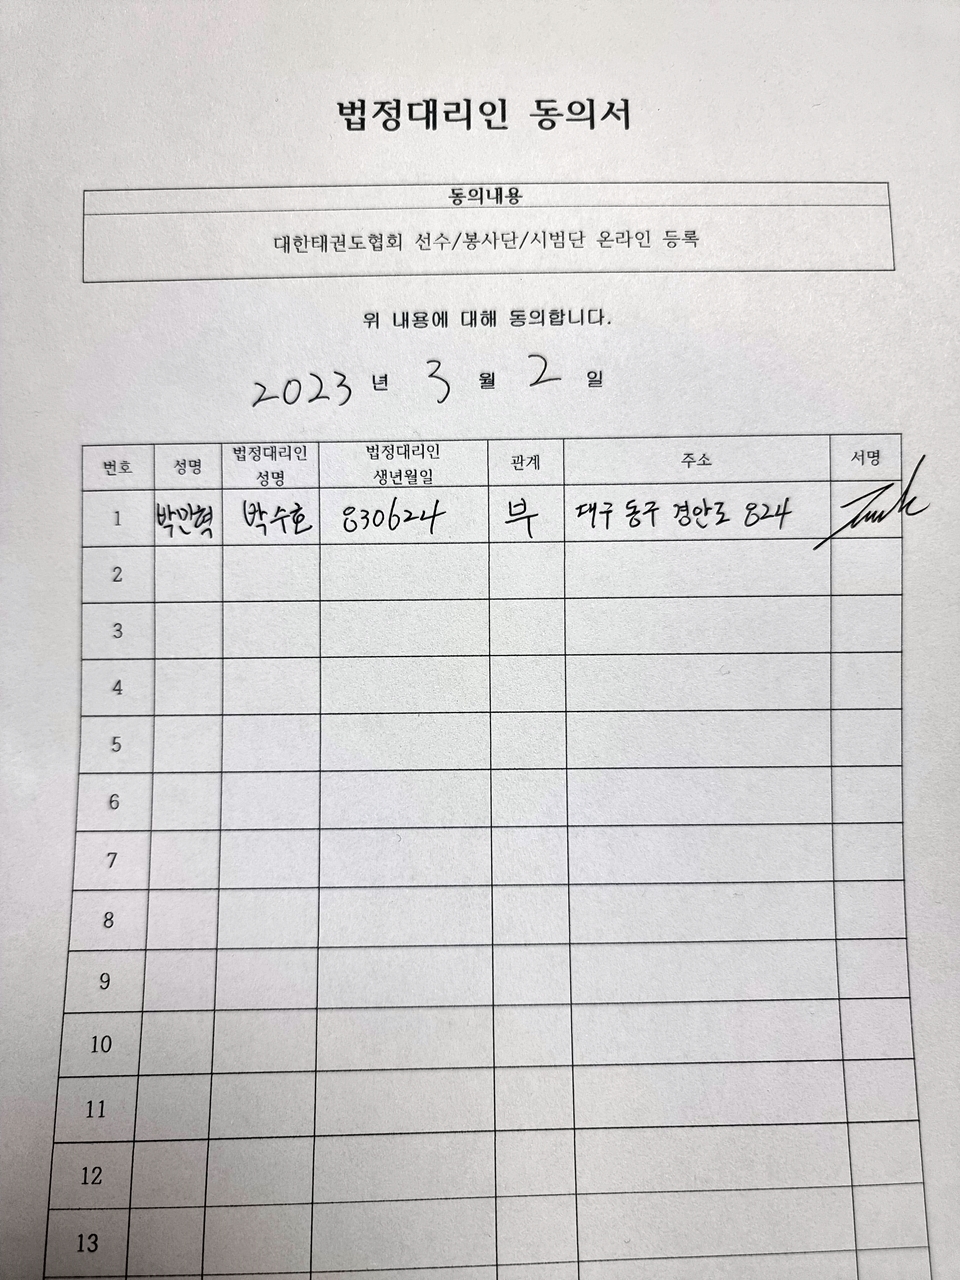 법정대리인 동의서
동의내용
대한태권도협회 선수/봉사단/시범단 온라인 등록
위 내용에 대해 동의합니다.
2023 년 3 월 2 일
번호 성명 법정대리인 성명 법정대리인 생년월일 관계 주소 서명
1 박민혁 박수호 830624 부 대구 동구 경안로 824
2
3
4
5
6
7
8
9
10
11
12
13